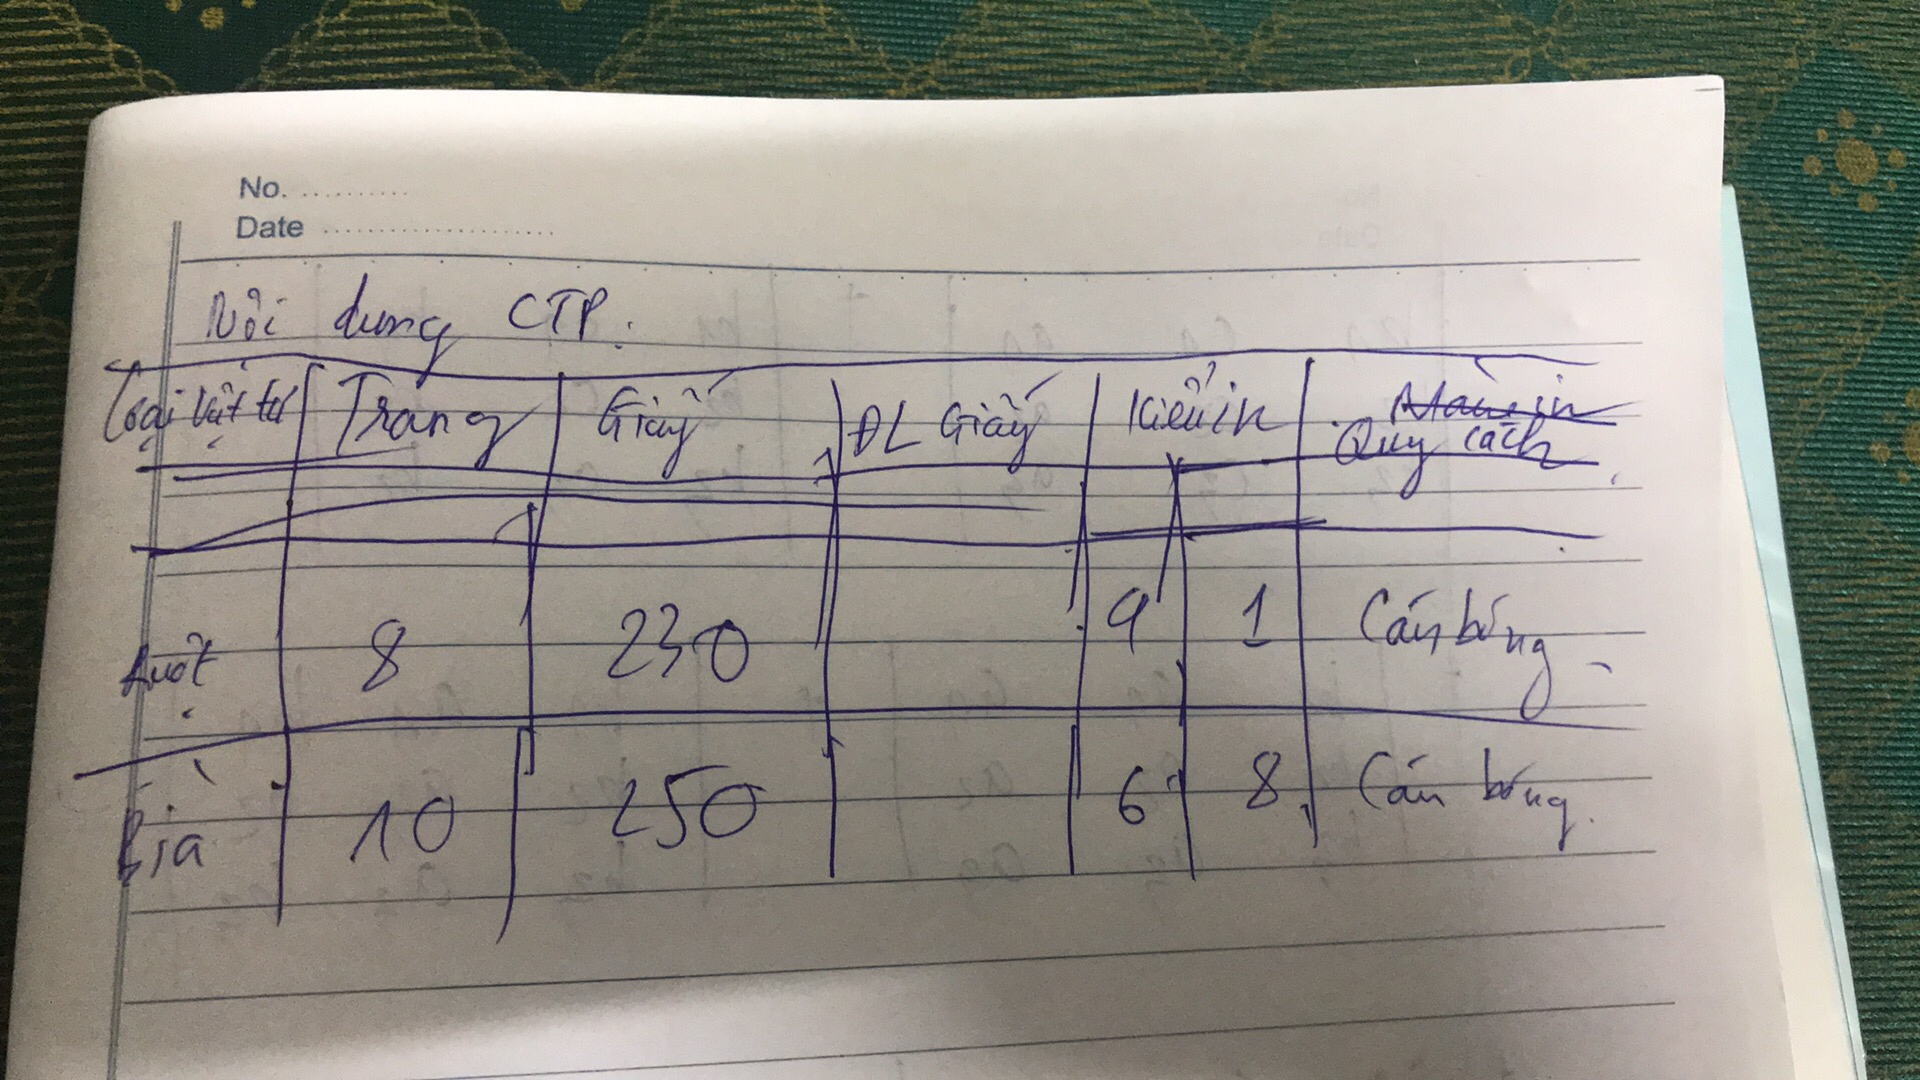 No. ..........
Date .....................
Nội dung CTP.
Loại vật tư Trang Giấy ĐL Giấy Kiểu in Màu in
Quy cách
Ruột 8 230 9 1 Cán bóng
Bìa 10 250 6 8 Cán bóng.